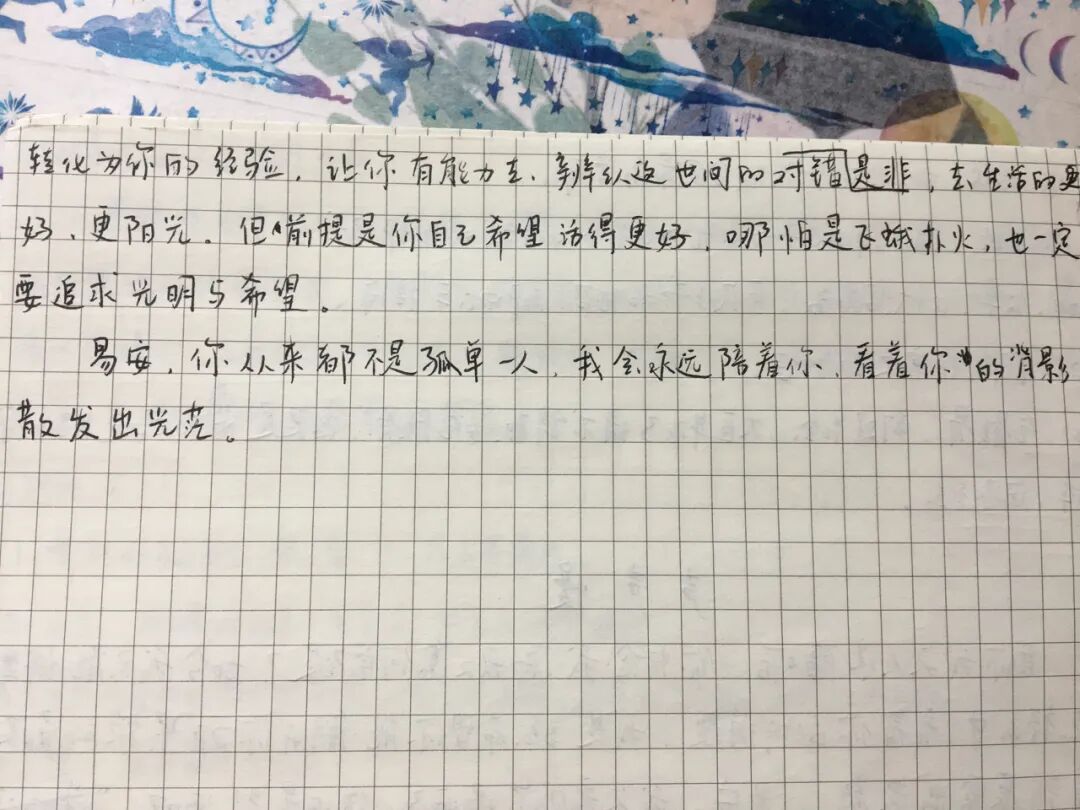 转化为你的经验，让你有能力去、辨认这世间的对错是非，去生活的更
好、更阳光。但前提是你自己希望活得更好，哪怕是飞蛾扑火，也一定
要追求光明与希望。
易安，你从来都不是孤单一人，我会永远陪着你，看着你的背影
散发出光茫。